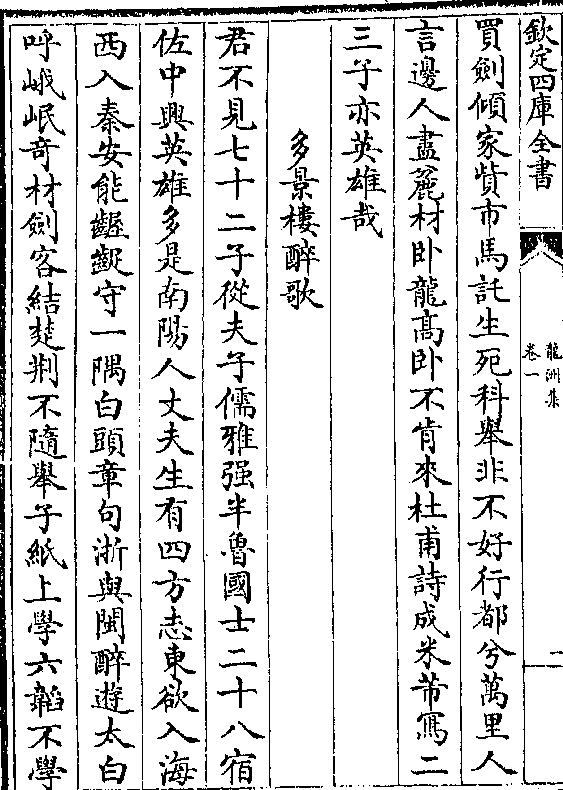 欽定四庫全書
龍洲集
卷一
二
買劍傾家貲市馬託生死科舉非不好行都兮萬里人
言邊人盡麄材卧龍髙卧不肯來杜甫詩成米芾寫二
三子亦英雄哉
多景樓醉歌
君不見七十二子從夫子儒雅强半魯國士二十八宿
佐中興英雄多是南陽人丈夫生有四方志東欲入海
西入秦安能齷齪守一隅白頭章句浙與閩醉遊太白
呼峨岷竒材劍客結楚荆不隨舉子紙上學六韜不學